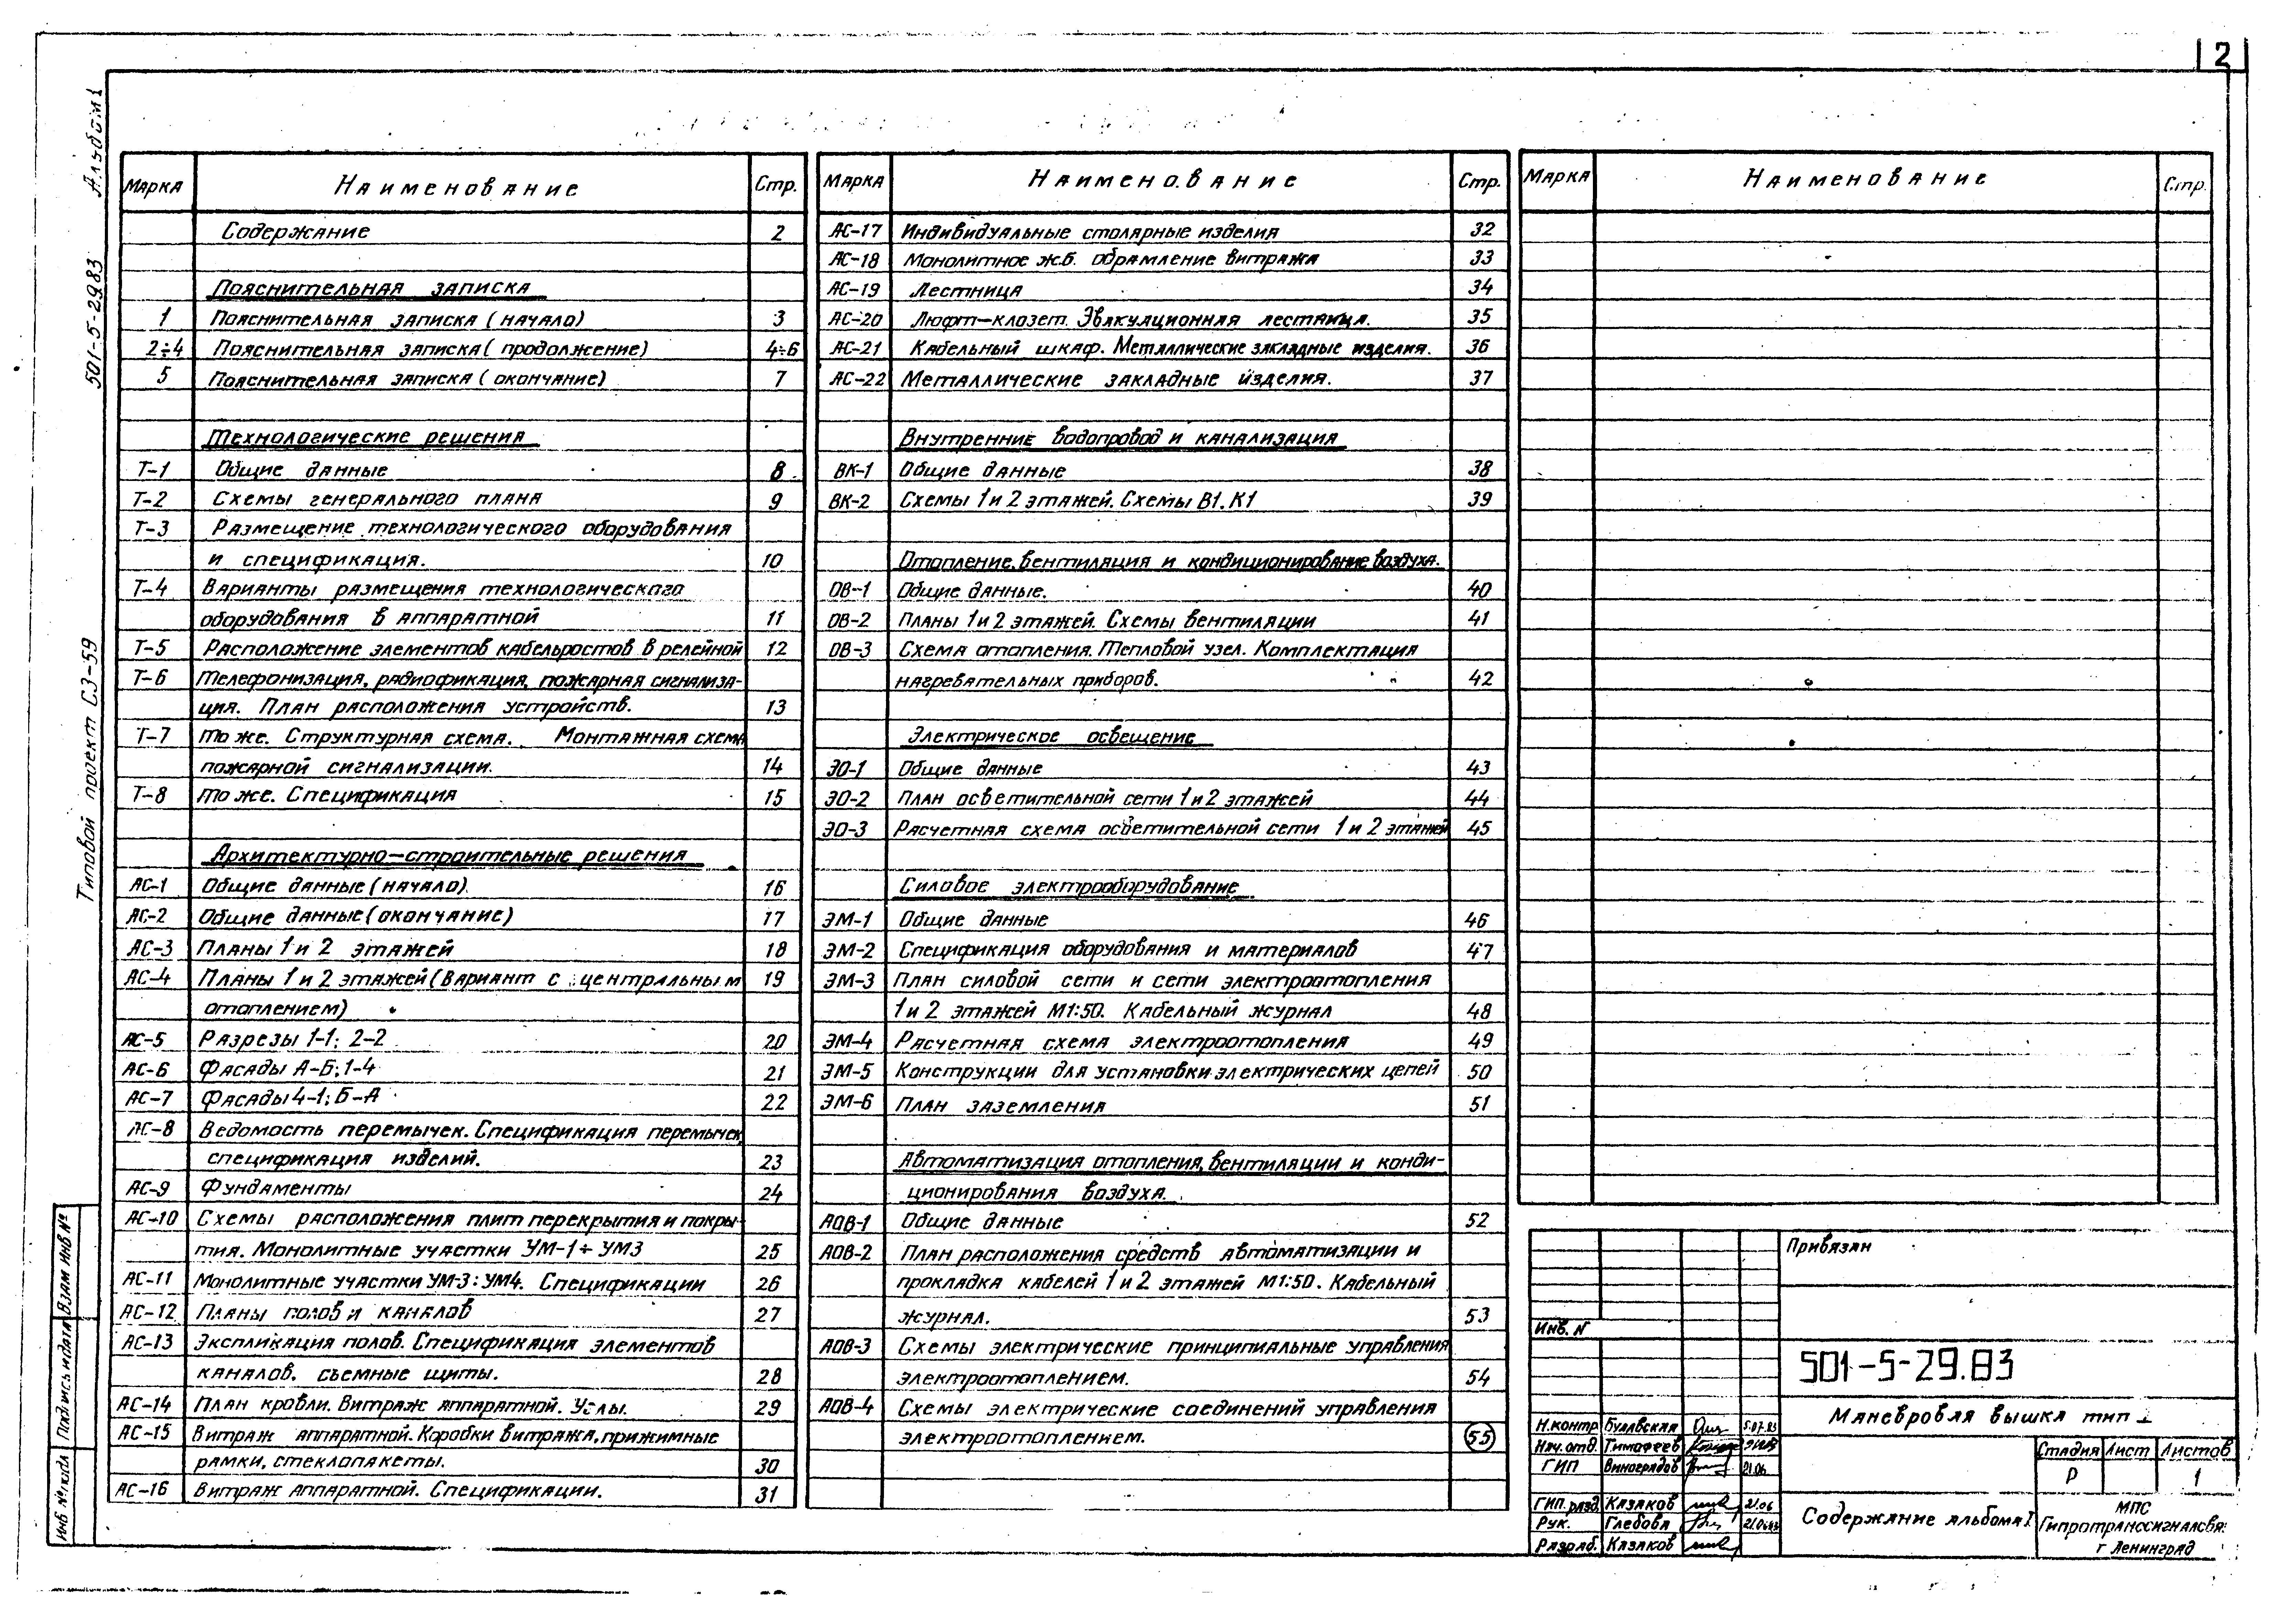 2
Альбом 1
501-5-29.83
Типовой проект СЗ-59
Взам инв №
Подпись и дата
Инв № подл
Марка Наименование Стр.
Содержание 2
Пояснительная записка
1 Пояснительная записка (начало) 3
2÷4 Пояснительная записка (продолжение) 4÷6
5 Пояснительная записка (окончание) 7
Технологические решения
Т-1 Общие данные 8
Т-2 Схемы генерального плана 9
Т-3 Размещение технологического оборудования
и спецификация. 10
Т-4 Варианты размещения технологического
оборудования в аппаратной 11
Т-5 Расположение элементов кабельростов в релейной 12
Т-6 Телефонизация, радиофикация, пожарная сигнализа-
ция. План расположения устройств. 13
Т-7 То же. Структурная схема. Монтажная схема
пожарной сигнализации. 14
Т-8 То же. Спецификация 15
Архитектурно-строительные решения
АС-1 Общие данные (начало) 16
АС-2 Общие данные (окончание) 17
АС-3 Планы 1 и 2 этажей 18
АС-4 Планы 1 и 2 этажей (вариант с центральным 19
отоплением)
АС-5 Разрезы 1-1; 2-2 20
АС-6 Фасады А-Б; 1-4 21
АС-7 Фасады 4-1; Б-А 22
АС-8 Ведомость перемычек. Спецификация перемычек
спецификация изделий. 23
АС-9 Фундаменты 24
АС-10 Схемы расположения плит перекрытия и покры-
тия. Монолитные участки УМ-1÷УМ3 25
АС-11 Монолитные участки УМ-3; УМ4. Спецификации 26
АС-12 Планы полов и каналов 27
АС-13 Экспликация полов. Спецификация элементов
каналов. съемные щиты. 28
АС-14 План кровли. Витраж аппаратной. Узлы. 29
АС-15 Витраж аппаратной. Коробки витража, прижимные
рамки, стеклопакеты. 30
АС-16 Витраж аппаратной. Спецификации. 31
Марка Наименование Стр.
АС-17 Индивидуальные столярные изделия 32
АС-18 Монолитное ж.б. обрамление витража 33
АС-19 Лестница 34
АС-20 Люфт-клозет. Эвакуационная лестница. 35
АС-21 Кабельный шкаф. Металлические закладные изделия. 36
АС-22 Металлические закладные изделия. 37
Внутренние водопровод и канализация
ВК-1 Общие данные 38
ВК-2 Схемы 1 и 2 этажей. Схемы В1. К1 39
Отопление, вентиляция и кондиционирование воздуха.
ОВ-1 Общие данные. 40
ОВ-2 Планы 1 и 2 этажей. Схемы вентиляции 41
ОВ-3 Схема отопления. Тепловой узел. Комплектация
нагревательных приборов. 42
Электрическое освещение
ЭО-1 Общие данные 43
ЭО-2 План осветительной сети 1 и 2 этажей 44
ЭО-3 Расчетная схема осветительной сети 1 и 2 этажей 45
Силовое электрооборудование
ЭМ-1 Общие данные 46
ЭМ-2 Спецификация оборудования и материалов 47
ЭМ-3 План силовой сети и сети электроотопления
1 и 2 этажей М1:50. Кабельный журнал 48
ЭМ-4 Расчетная схема электроотопления 49
ЭМ-5 Конструкции для установки электрических цепей 50
ЭМ-6 План заземления 51
Автоматизация отопления, вентиляции и конди-
ционирования воздуха.
АОВ-1 Общие данные 52
АОВ-2 План расположения средств автоматизации и
прокладка кабелей 1 и 2 этажей М1:50. Кабельный
журнал. 53
АОВ-3 Схемы электрические принципиальные управления
электроотоплением. 54
АОВ-4 Схемы электрические соединений управления
электроотоплением. 55
Марка Наименование Стр.
Привязан
Инв. №
501-5-29.83
Маневровая вышка тип I
Н.контр Булавская 5.07.83
Нач.отд. Тимофеев
ГИП Виноградов 21.06
ГИП разд. Казаков 21.06
Рук. Глебова 21.06.83
Разраб. Казаков
Стадия Лист Листов
Р 1
Содержание альбома I
МПС
Гипротранссигналсвязь
г Ленинград